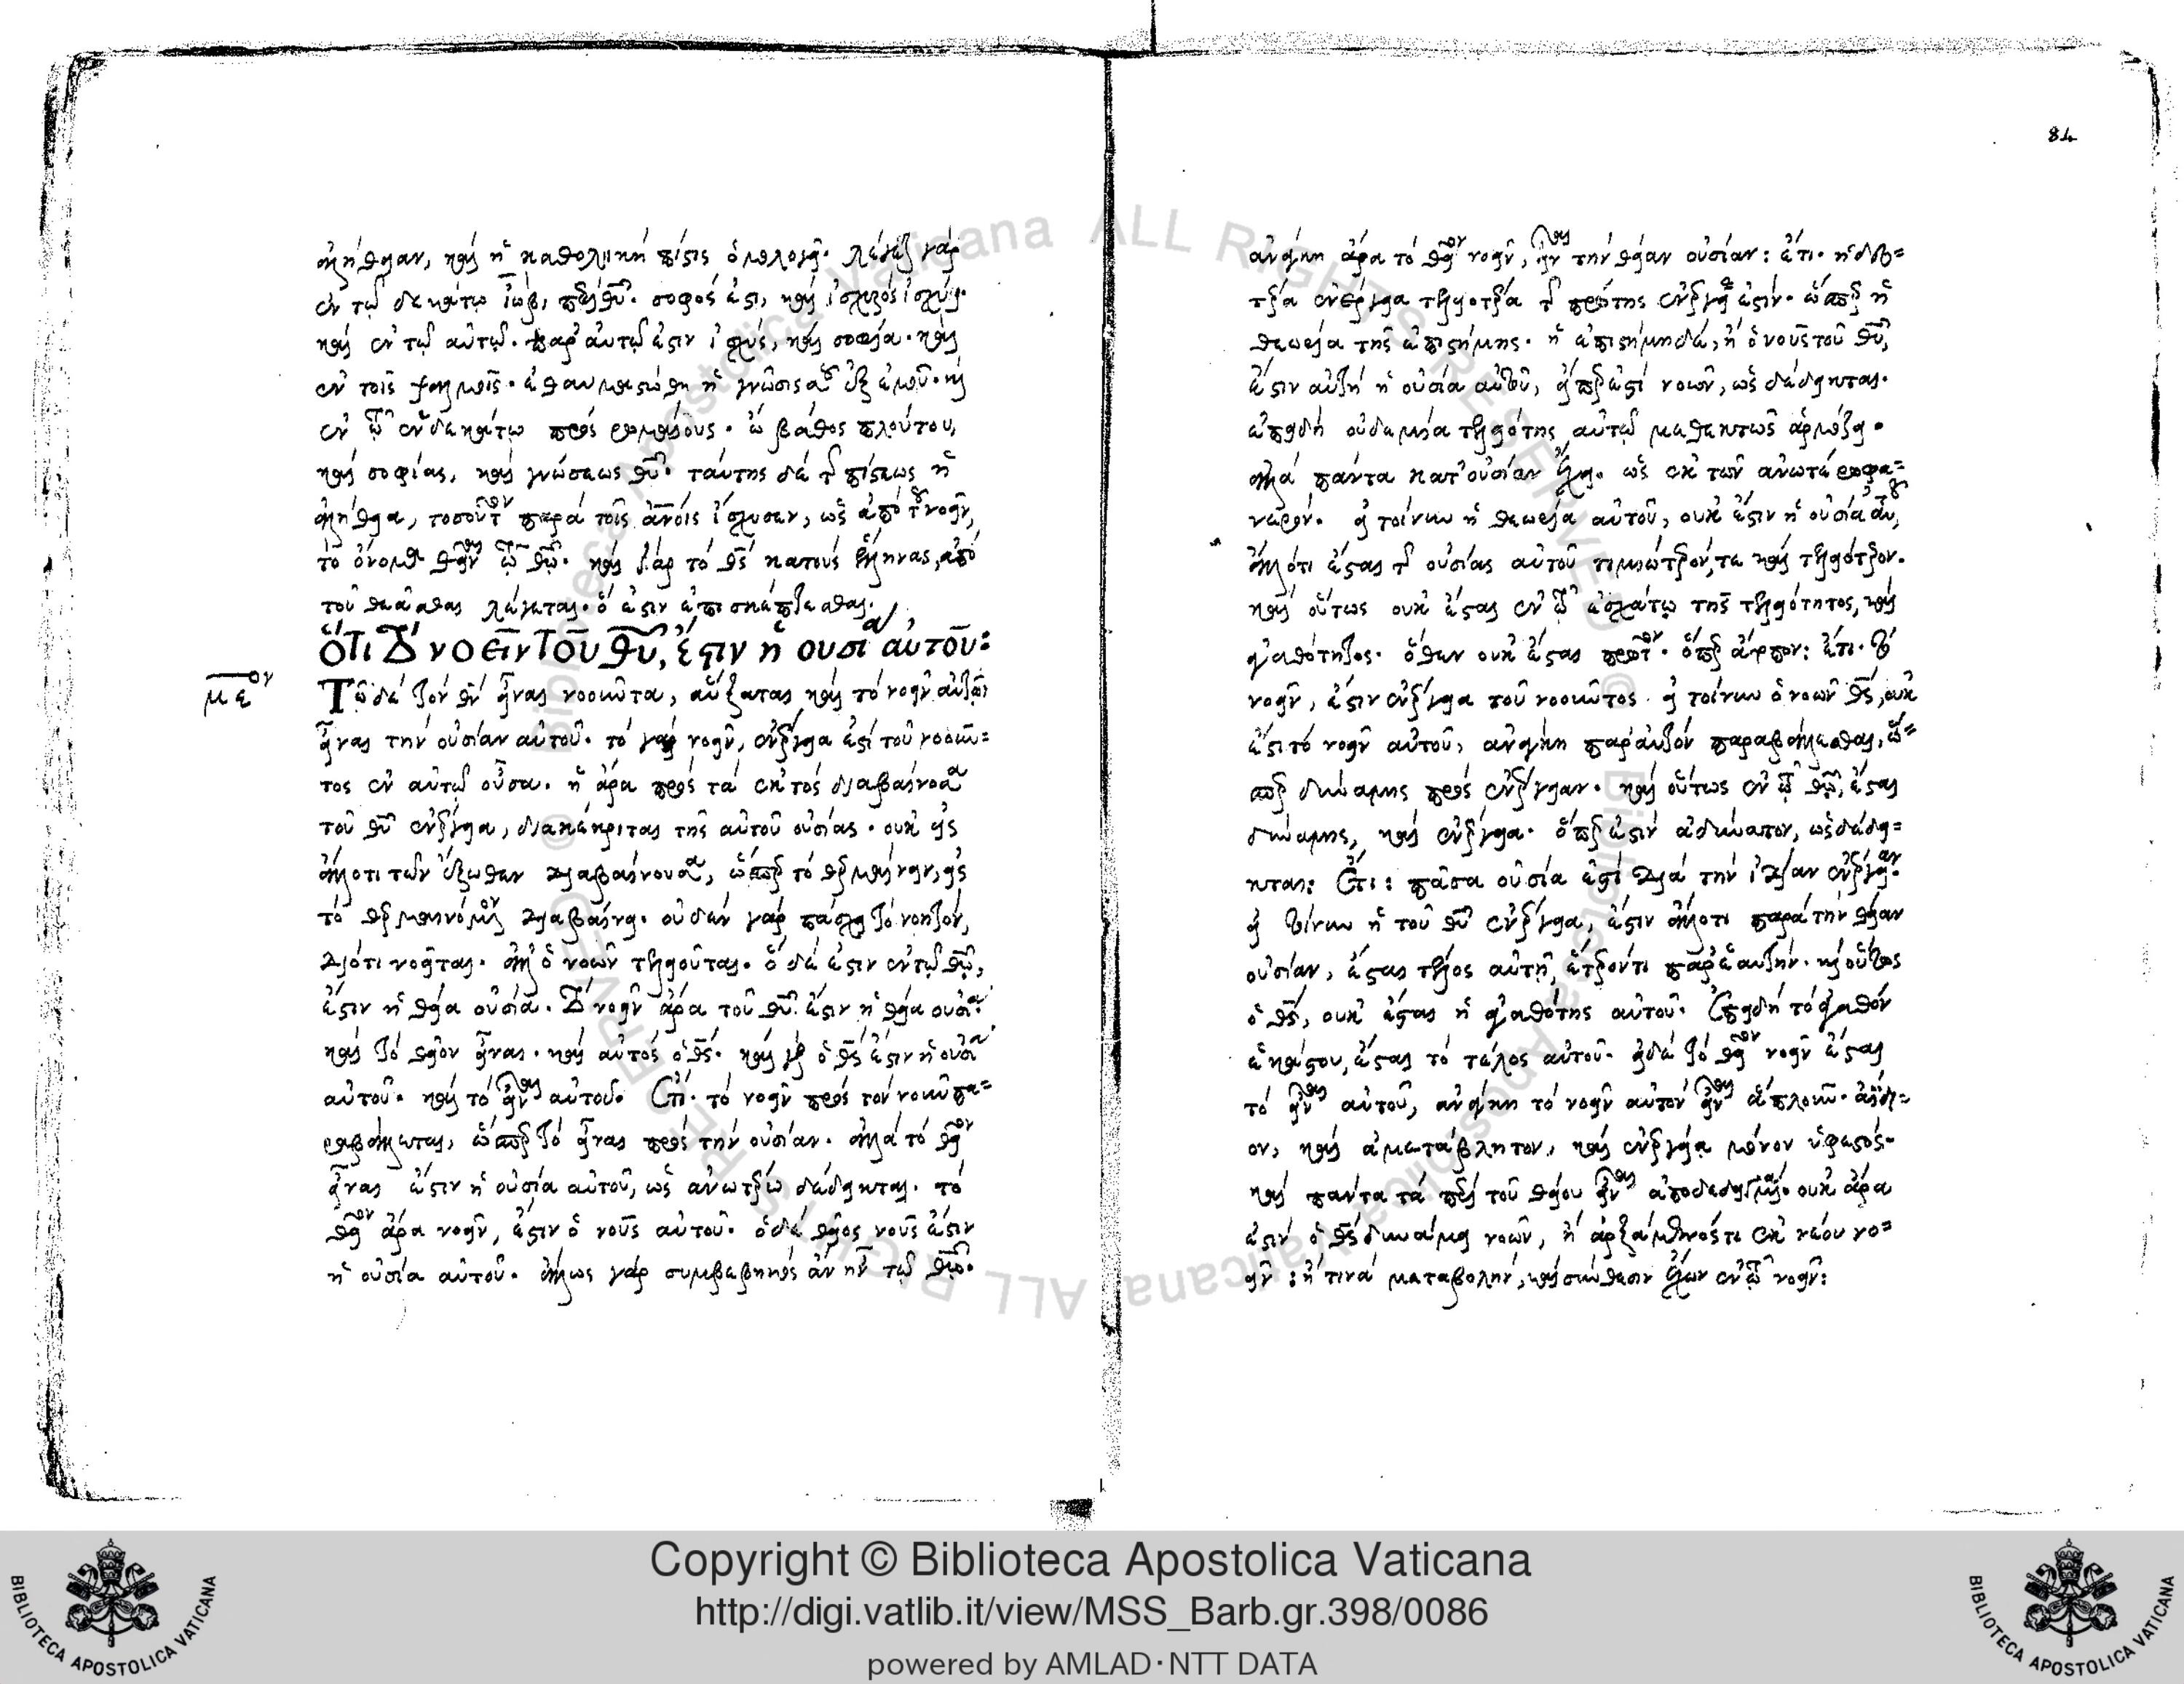 ἀλήθειαν, καὶ ἡ καθολικὴ πίστις ὁμολογεῖ. λέγεται γὰρ
ἐν τῷ δεκάτῳ ἰὼβ, περὶ θῦ. σοφός ἐστι, καὶ ἰσχυρὸς ἰσχύϊ.
καὶ ἐν τῷ αὐτῷ. παρ' αὐτῷ ἐστιν ἰσχύς, καὶ σοφία. καὶ
ἐν τοῖς ψαλμοῖς. ἐθαυμαστώθη ἡ γνῶσίς σου ἐξ ἐμοῦ. καὶ
ἐν τῷ ἑνδεκάτῳ πρὸς ῥωμαίους. ὦ βάθος πλούτου,
καὶ σοφίας, καὶ γνώσεως θῦ. ταύτης δὲ τῆς πίστεως ἡ
ἀλήθεια, τοσοῦτον παρὰ τοῖς ἀνοις ἴσχυσεν, ὡς ἀπὸ τοῦ νοεῖν,
τὸ ὄνομα θεῖναι τῷ θῶ. καὶ γὰρ τὸ θς κατὰ τοὺς ἕλληνας, ἀπὸ
τοῦ θεᾶσθαι λέγεται. ὅ ἐστιν ἐπισκέπτεσθαι.
ὅτι τὸ νοεῖν τοῦ θῦ, ἐστιν ἡ οὐσία αὐτοῦ:
με ον
Τῷ δὲ τὸν θν εἶναι νοοῦντα, αὔξεται καὶ τὸ νοεῖν αὐτοῦ
εἶναι τὴν οὐσίαν αὐτοῦ. τὸ γὰρ νοεῖν, ἐνέργειά ἐστι τοῦ νοοῦν=
τος ἐν αὐτῷ οὖσα. ἡ ἄρα πρὸς τὰ ἐκτὸς διαβαίνουσα
τοῦ θῦ ἐνέργεια, διακέκριται τῆς αὐτοῦ οὐσίας. οὐκ εἴς
ἄλλό τι τῶν ἔξωθεν διαβαίνουσα, ὥσπερ τὸ θερμαίνειν, εἰς
τὸ θερμαινόμενον διαβαίνει. οὐδὲν γὰρ πάσχει τὸ νοητόν,
διότι νοεῖται. ἀλλ' ὁ νοῶν τελειοῦται. ὃ δέ ἐστιν ἐν τῷ θῶ,
ἔστιν ἡ θεία οὐσία. τὸ νοεῖν ἄρα τοῦ θῦ ἐστιν ἡ θεία οὐσία.
καὶ τὸ θεῖον εἶναι. καὶ αὐτὸς ὁ θς. καὶ γὰρ ὁ θς ἐστιν ἡ οὐσία
αὐτοῦ. καὶ τὸ εἶναι αὐτοῦ. Ἔτι. τὸ νοεῖν πρὸς τὸν νοῦν πα=
ραβάλλεται, ὥσπερ τὸ εἶναι πρὸς τὴν οὐσίαν. ἀλλὰ τὸ θεῖον
εἶναι ἐστιν ἡ οὐσία αὐτοῦ, ὡς ἀνωτέρω δέδεικται. τὸ
θεῖον ἄρα νοεῖν, ἐστιν ὁ νοῦς αὐτοῦ. ὁ δὲ θεῖος νοῦς ἐστιν
ἡ οὐσία αὐτοῦ. ἄλλως γὰρ συμβεβηκὸς ἂν ἦν τῷ θῶ.
84
ἀνάγκη ἄρα τὸ θεῖον νοεῖν, εἶναι τὴν θείαν οὐσίαν: ἔτι. ἡ δευ=
τέρα ἐνέργεια τελειοτέρα τῆς πρώτης ἐνεργείας ἐστίν. ὥσπερ ἡ
θεωρία τῆς ἐπιστήμης. ἡ ἐπιστήμη δὲ, ἢ ὁ νοῦς τοῦ θῦ,
ἐστὶν αὐτὴ ἡ οὐσία αὐτοῦ, εἴπερ ἐστὶ νοῶν, ὡς δέδεικται.
ἐπειδὴ οὐδεμία τελειότης αὐτῷ μεθεκτῶς ἁρμόζει.
ἀλλὰ πάντα κατ' οὐσίαν ἔχει. ὡς ἐκ τῶν ἀνωτέρω φα=
νερόν. εἰ τοίνυν ἡ θεωρία αὐτοῦ, οὐκ ἔστιν ἡ οὐσία αὐτοῦ,
ἄλλό τι ἔσται τῆς οὐσίας αὐτοῦ τιμιώτερόν, τε καὶ τελειότερον.
καὶ οὕτως οὐκ ἔσται ἐν τῷ ἐσχάτῳ τῆς τελειότητος, καὶ
ἀγαθότητος. ὅθεν οὐκ ἔσται πρῶτον. ὅπερ ἄτοπον: ἔτι. τὸ
νοεῖν, ἐστιν ἐνέργεια τοῦ νοοῦντος. εἰ τοίνυν ὁ νοῶν θς, οὐκ
ἔστι τὸ νοεῖν αὐτοῦ, ἀνάγκη παρ' αὐτὸν παραβάλλεσθαι, ὥ=
σπερ δύναμις πρὸς ἐνέργειαν. καὶ οὕτως ἐν τῷ θῶ, ἔσται
δύναμις, καὶ ἐνέργεια. ὅπερ ἐστὶν ἀδύνατον, ὡς δέδει=
κται: Ἔτι: πᾶσα οὐσία ἐστὶ διὰ τὴν ἰδίαν ἐνέργειαν.
εἰ τοίνυν ἡ τοῦ θῦ ἐνέργεια, ἐστιν ἄλλό τι παρὰ τὴν θείαν
οὐσίαν, ἔσται τέλος αὐτῆς ἕτερόν τι παρ' ἑαυτήν. καὶ οὕτως
ὁ θς, οὐκ ἔσται ἡ ἀγαθότης αὐτοῦ. Ἐπειδὴ τὸ ἀγαθὸν
ἑκάστου, ἐσται τὸ τέλος αὐτοῦ. εἰ δὲ τὸ θεῖον νοεῖν ἐσται
τὸ εἶναι αὐτοῦ, ἀνάγκη τὸ νοεῖν αὐτὸν εἶναι ἁπλοῦν. ἀΐδι=
ον, καὶ ἀμετάβλητον, καὶ ἐνεργείᾳ μόνον ὑφεστός.
καὶ πάντα τὰ περὶ τοῦ θείου εἶναι ἀποδεδειγμένα. οὐκ ἄρα
ἐστὶν ὁ θς δυνάμει νοῶν, ἢ ἀρξάμενός τι ἐκ νέου νο=
εῖν: ἤ τινα μεταβολὴν, καὶ σύνθεσιν ἔχων ἐν τῷ νοεῖν:
Copyright © Biblioteca Apostolica Vaticana
http://digi.vatlib.it/view/MSS_Barb.gr.398/0086
powered by AMLAD·NTT DATA
BIBLIOTECA APOSTOLICA VATICANA
BIBLIOTECA APOSTOLICA VATICANA